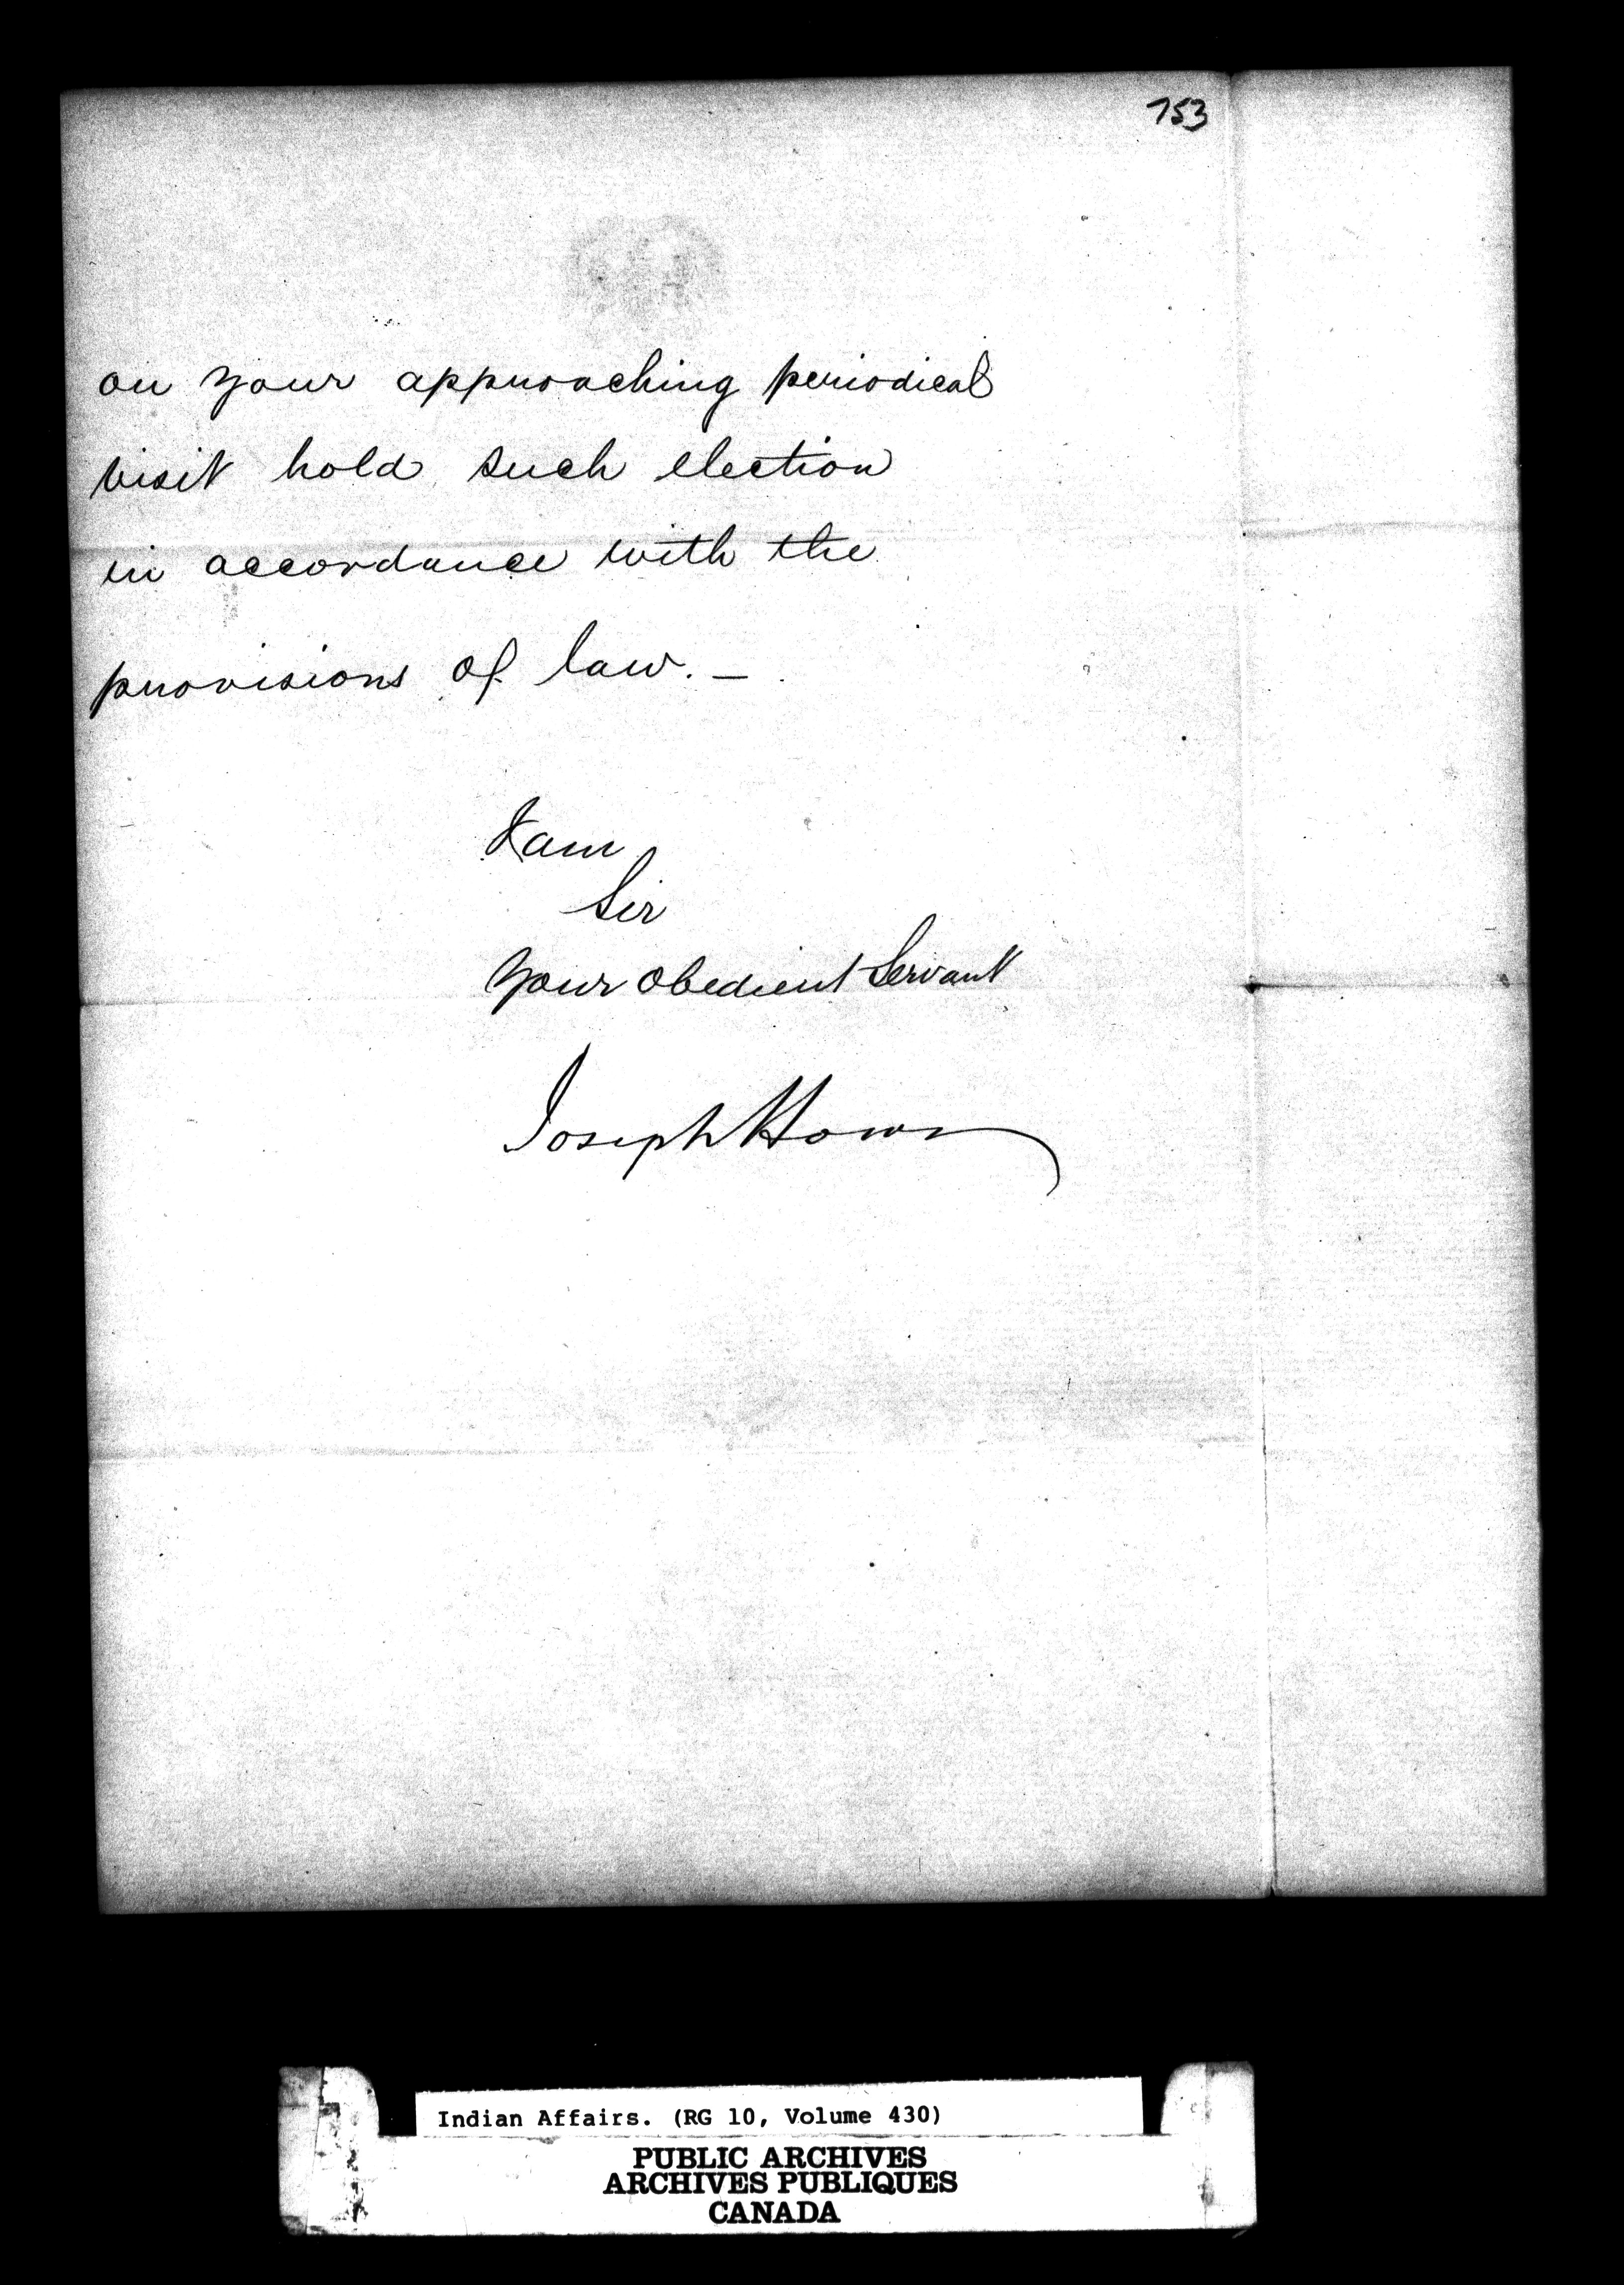 753
on your approaching periodical
visit hold such election
in accordance with the
provisions of law. —
I am
Sir
Your obedient Servant
Joseph Howe
Indian Affairs. (RG 10, Volume 430)
PUBLIC ARCHIVES
ARCHIVES PUBLIQUES
CANADA